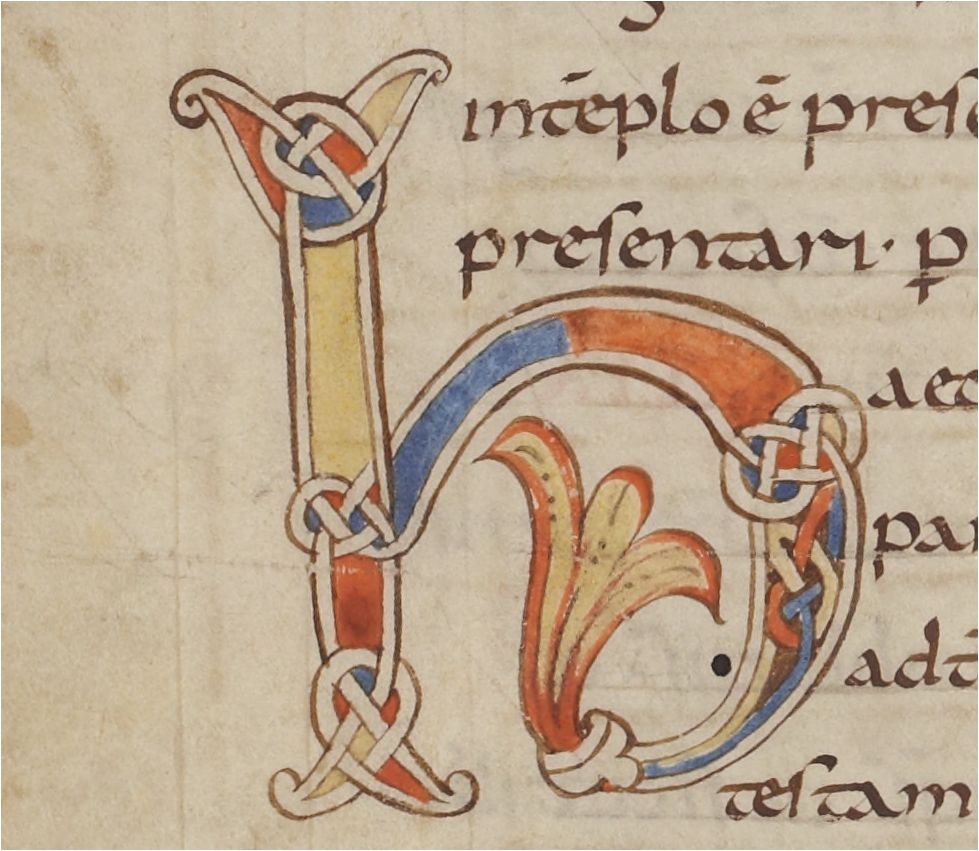 H
intēplo ē pres
presentari· p̱
aec
par
adt̄
testam